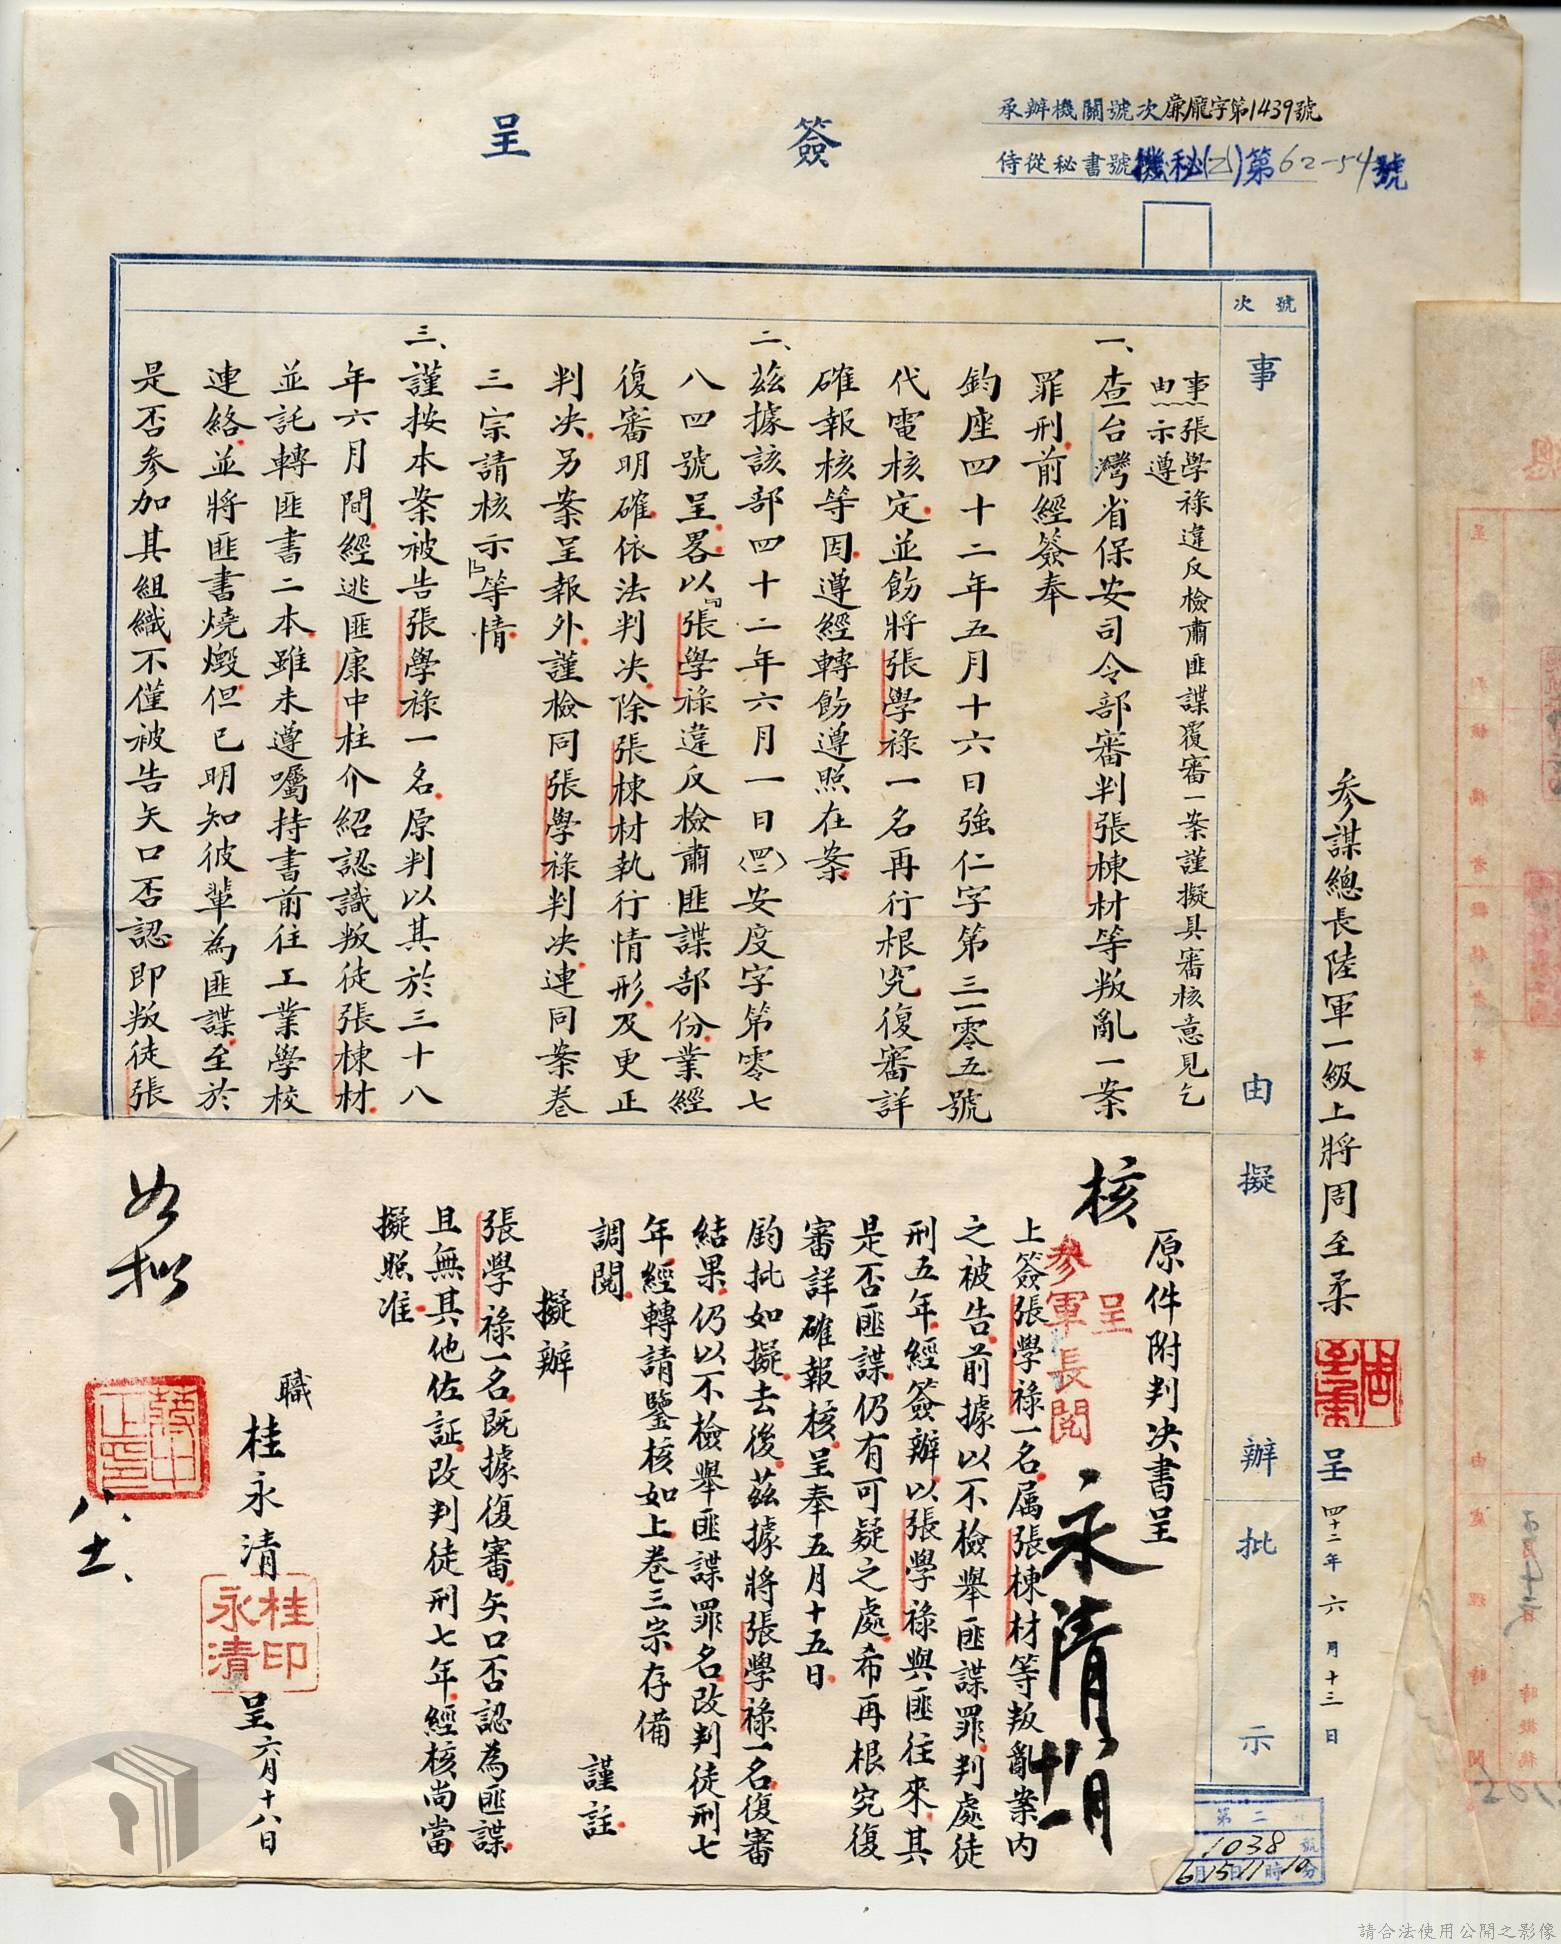 簽呈
承辦機關號次廉龐字第1439號
侍從秘書號機秘(乙)第62-54號
號次
事由
擬辦
批示
參謀總長陸軍一級上將周至柔
呈
四十二年六月十三日
事由：張學祿違反檢肅匪諜覆審一案謹擬具審核意見乞
示遵
一、查台灣省保安司令部審判張棟材等叛亂一案
罪刑前經簽奉
鈞座四十二年五月十六日強仁字第三一零五號
代電核定並飭將張學祿一名再行根究復審詳
確報核等因遵經轉飭遵照在案
二、茲據該部四十二年六月一日(四二)安度字第零七
八四號呈畧以『張學祿違反檢肅匪諜部份業經
復審明確依法判決除張棟材執行情形及更正
判決另案呈報外謹檢同張學祿判決連同案卷
三宗請核示』等情
三、謹按本案被告張學祿一名原判以其於三十八
年六月間經逃匪康中柱介紹認識叛徒張棟材
並託轉匪書二本雖未遵囑持書前往工業學校
連絡並將匪書燒燬但已明知彼輩為匪諜至於
是否參加其組織不僅被告矢口否認即叛徒張
原件附判決書呈
核
呈
參軍長閱
永清
十八
上簽張學祿一名屬張棟材等叛亂案內
之被告前據以不檢舉匪諜罪判處徒
刑五年經簽辦以張學祿與匪往來其
是否匪諜仍有可疑之處希再根究復
審詳確報核呈奉五月十五日
鈞批如擬去後茲據將張學祿一名復審
結果仍以不檢舉匪諜罪名改判徒刑七
年經轉請鑒核如上卷三宗存備
調閱
謹註
擬辦
張學祿一名既據復審矢口否認為匪諜
且無其他佐証改判徒刑七年經核尚當
擬照准
職桂永清
桂永清印
呈六月十八日
如擬
蔣中正印
八、十、
第二
1038號
6月15日11時10分
請合法使用公開之影像